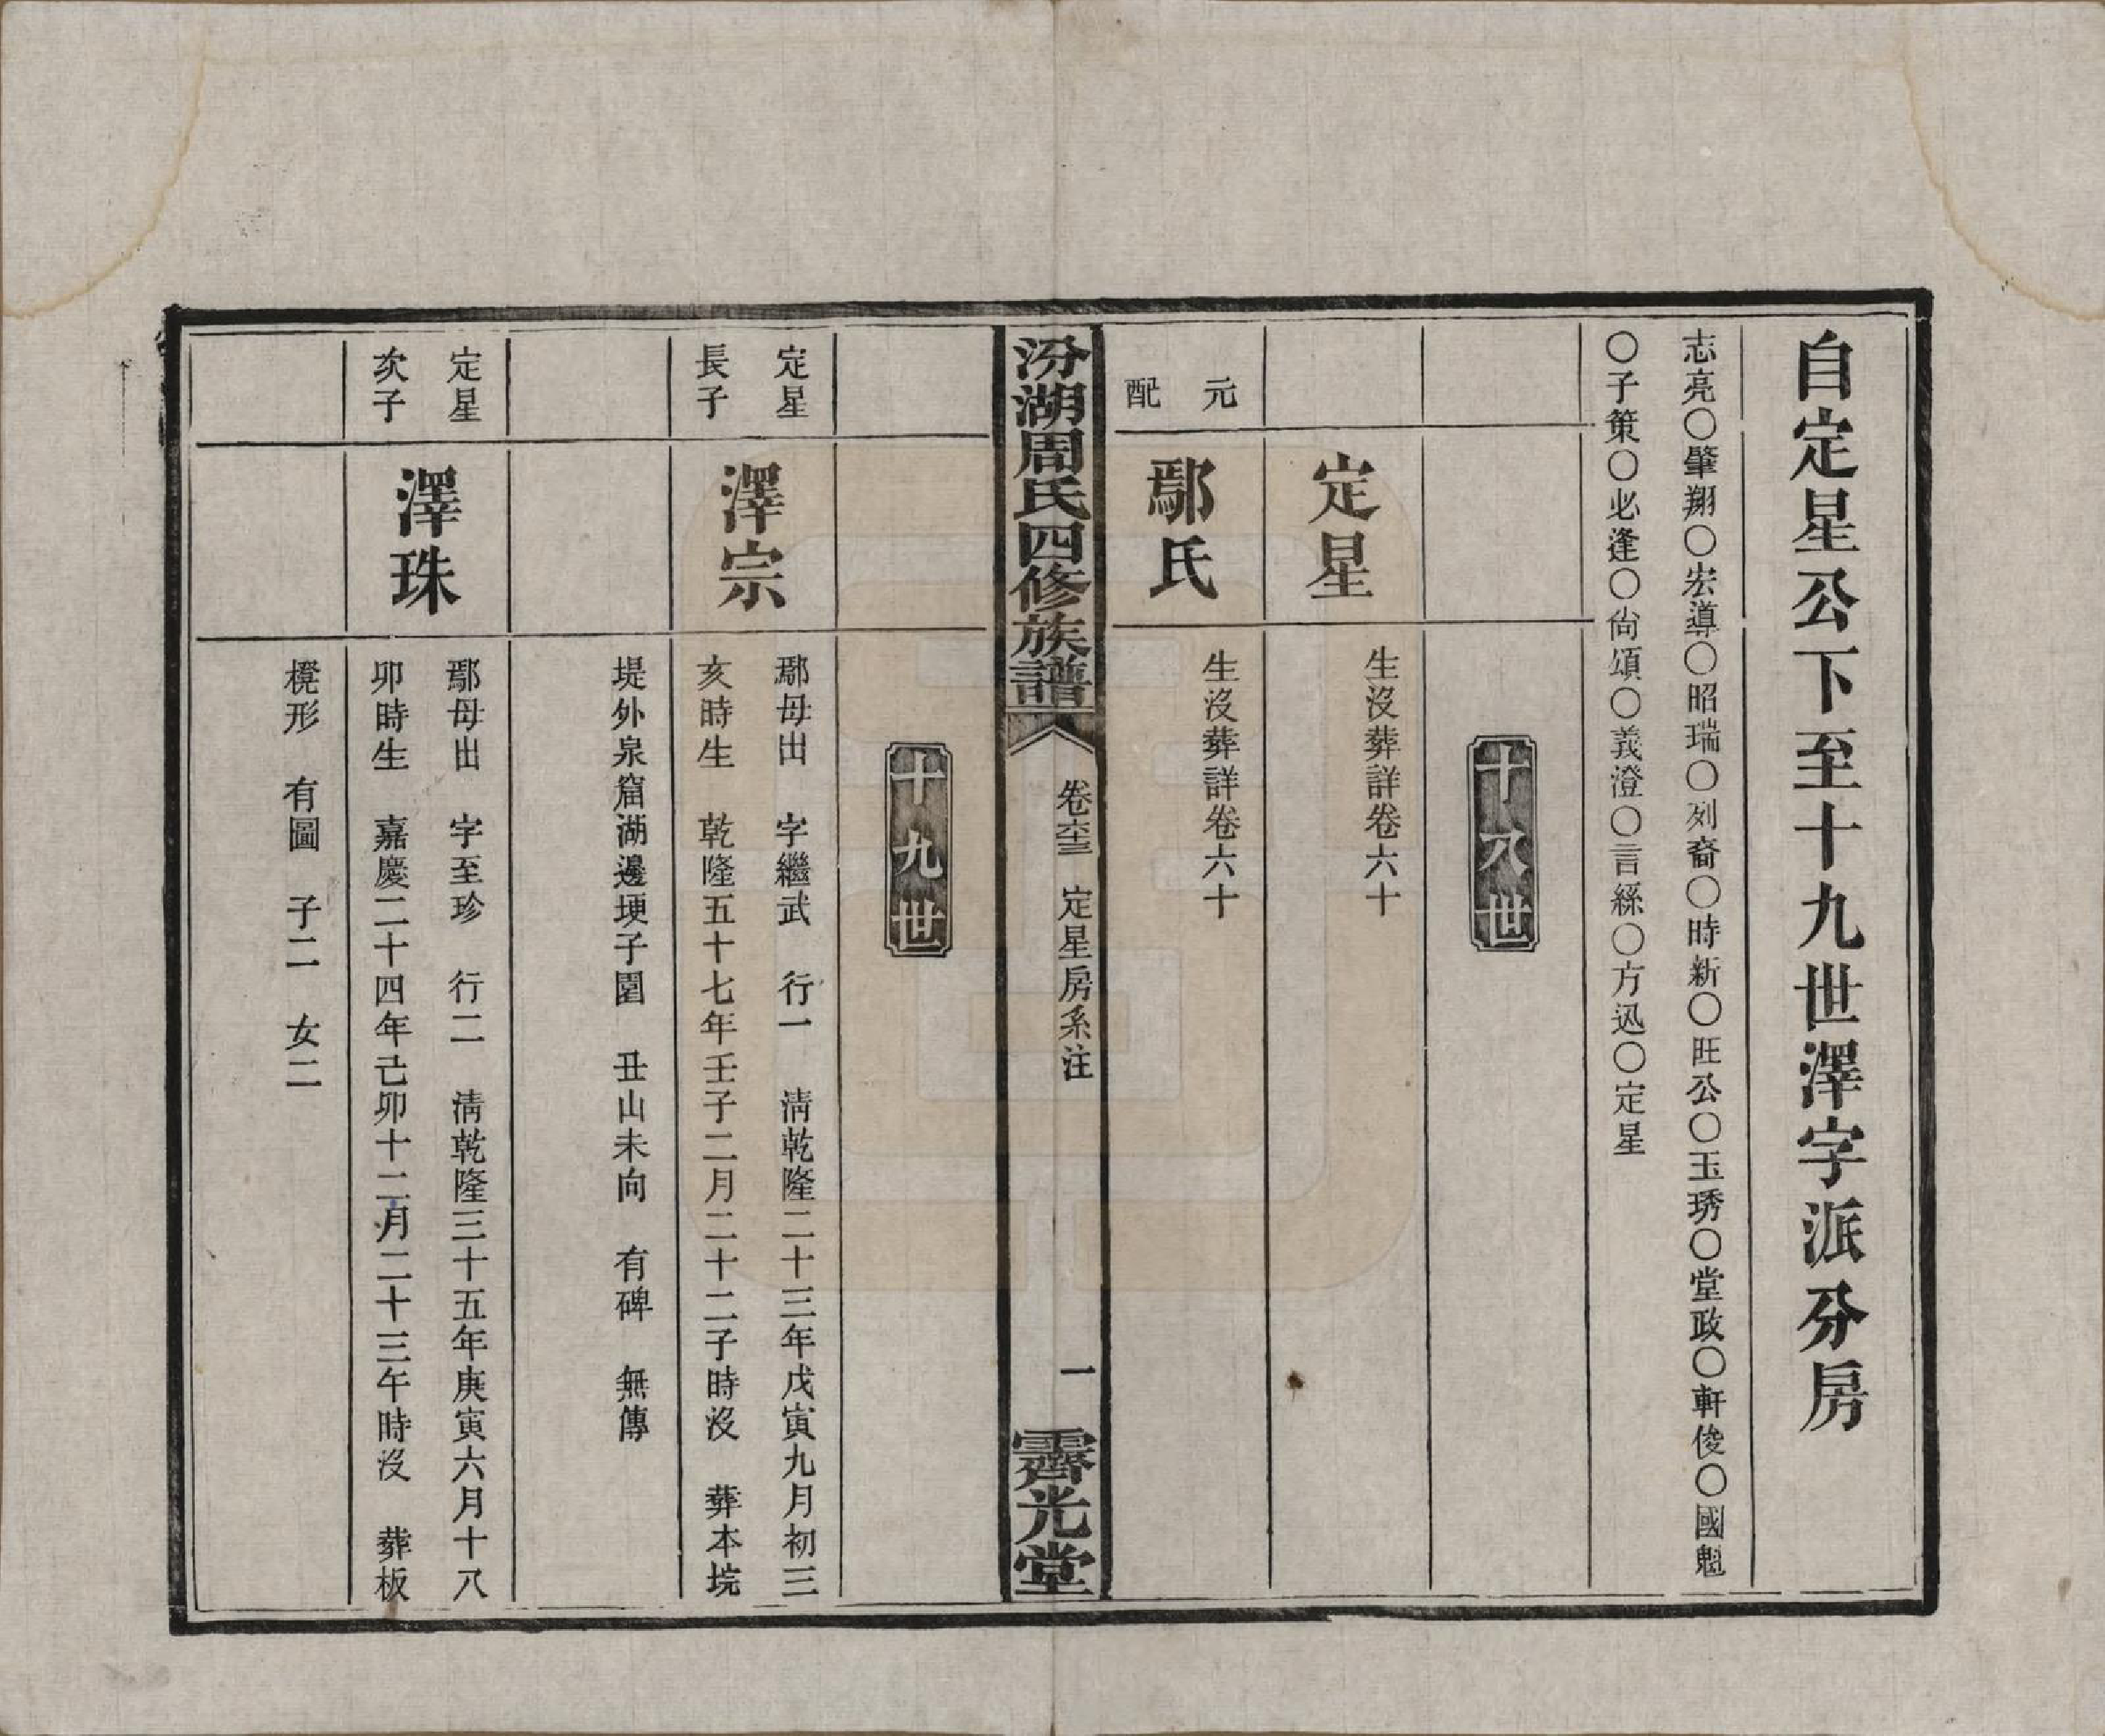 自定星公下至十九世澤字派分房
志亮〇肇翔〇宏導〇昭瑞〇列裔〇時新〇旺公〇玉琇〇堂政〇軒俊〇國魁
〇子策〇必逢〇尙頌〇義澄〇言綵〇方迅〇定星
十八世
定星
生沒葬詳卷六十
元配
鄢氏
生沒葬詳卷六十
汾湖周氏四修族譜
卷六十三 定星房系注
一
霽光堂
十九世
定星
長子
澤宗
鄢母出 字繼武 行一 淸乾隆二十三年戊寅九月初三
亥時生 乾隆五十七年壬子二月二十二子時沒 葬本垸
堤外泉窟湖邊埂子園 丑山未向 有碑 無傳
定星
次子
澤珠
鄢母出 字至珍 行二 淸乾隆三十五年庚寅六月十八
卯時生 嘉慶二十四年己卯十二月二十三午時沒 葬板
櫈形 有圖 子二 女二